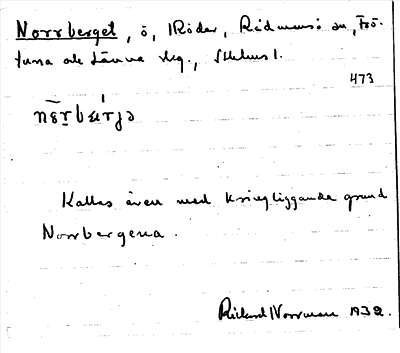 Norrberget, ö, Röder, Rådmansö sn, Frö-
tuna och Länna skg., Sthlms l.
473
Kallas även med kringliggande grund
Norrbergena.
Rickard Norrman 1932.